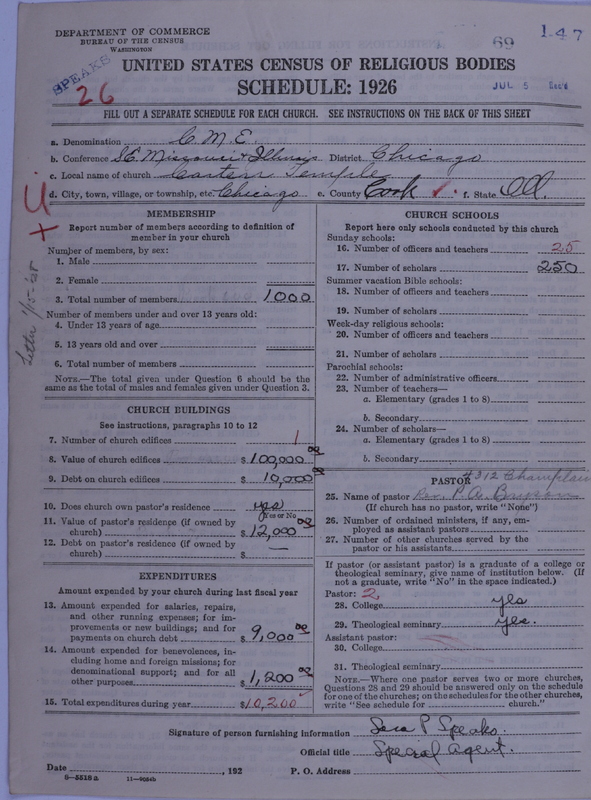 DEPARTMENT OF COMMERCE
BUREAU OF THE CENSUS
WASHINGTON
69
147
SPEAKS
26
UNITED STATES CENSUS OF RELIGIOUS BODIES
SCHEDULE: 1926
JUL 5 Rec'd
FILL OUT A SEPARATE SCHEDULE FOR EACH CHURCH. SEE INSTRUCTIONS ON THE BACK OF THIS SHEET
a. Denomination C.M.E.
b. Conference S.E. Missouri & Illinois District Chicago
c. Local name of church Carter Temple
d. City, town, village, or township, etc. Chicago e. County Cook f. State Ill.
Letter 1/15-28
MEMBERSHIP
Report number of members according to definition of
member in your church
Number of members, by sex:
1. Male
2. Female
3. Total number of members 1000
Number of members under and over 13 years old:
4. Under 13 years of age
5. 13 years old and over
6. Total number of members
NOTE.—The total given under Question 6 should be the
same as the total of males and females given under Question 3.
CHURCH BUILDINGS
See instructions, paragraphs 10 to 12
7. Number of church edifices 1
8. Value of church edifices $100,000 00
9. Debt on church edifices $10,000 00
10. Does church own pastor's residence yes
(Yes or No)
11. Value of pastor's residence (if owned by
church) $12,000 00
12. Debt on pastor's residence (if owned by
church) $ —
EXPENDITURES
Amount expended by your church during last fiscal year
13. Amount expended for salaries, repairs,
and other running expenses; for im-
provements or new buildings; and for
payments on church debt $9,000 00
14. Amount expended for benevolences, in-
cluding home and foreign missions; for
denominational support; and for all
other purposes $1,200 00
15. Total expenditures during year $10,200
CHURCH SCHOOLS
Report here only schools conducted by this church
Sunday schools:
16. Number of officers and teachers 25
17. Number of scholars 250
Summer vacation Bible schools:
18. Number of officers and teachers
19. Number of scholars
Week-day religious schools:
20. Number of officers and teachers
21. Number of scholars
Parochial schools:
22. Number of administrative officers
23. Number of teachers—
a. Elementary (grades 1 to 8)
b. Secondary
24. Number of scholars—
a. Elementary (grades 1 to 8)
b. Secondary
PASTOR 4312 Champlain
25. Name of pastor Rev. P. A. Bryson
(If church has no pastor, write "None")
26. Number of ordained ministers, if any, em-
ployed as assistant pastors
27. Number of other churches served by the
pastor or his assistants
If pastor (or assistant pastor) is a graduate of a college or
theological seminary, give name of institution below. (If
not a graduate, write "No" in the space indicated.)
Pastor: 2
28. College yes
29. Theological seminary yes.
Assistant pastor:
30. College
31. Theological seminary
NOTE.—Where one pastor serves two or more churches,
Questions 28 and 29 should be answered only on the schedule
for one of the churches; on the schedules for the other churches,
write "See schedule for church."
Signature of person furnishing information Sara P Speaks
Official title Special Agent.
Date , 192 P. O. Address
8—5518 a 11—9054b